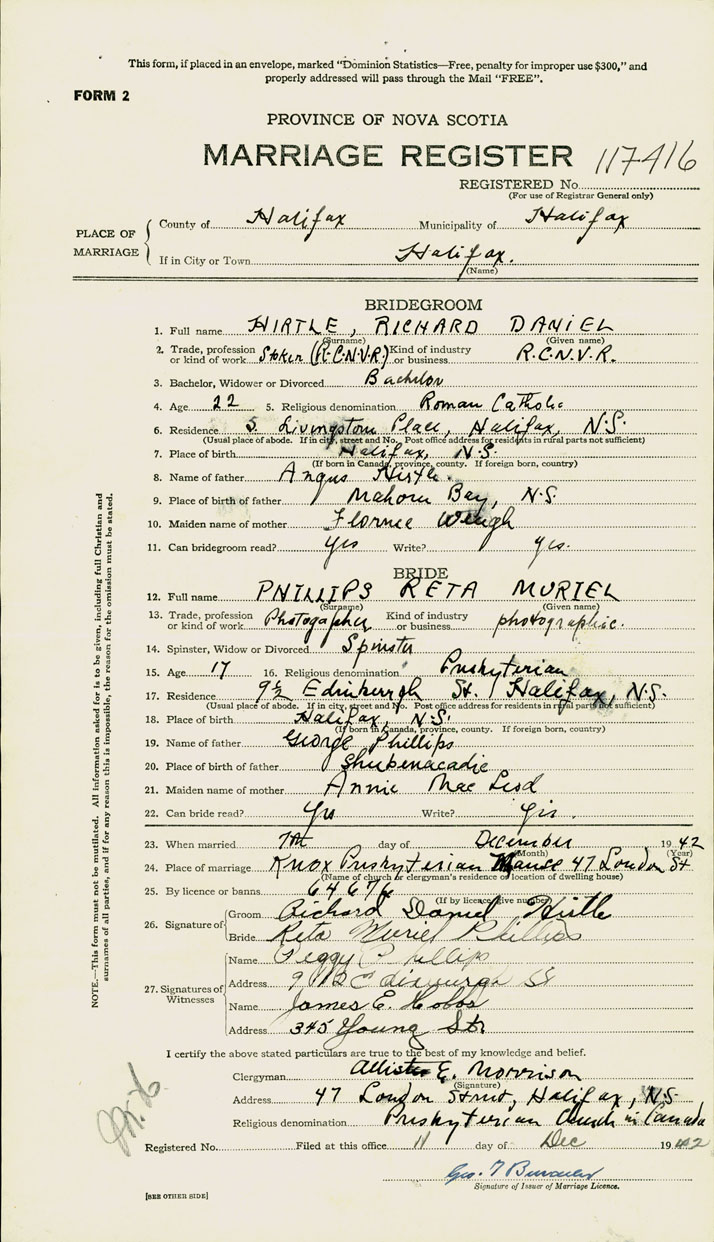 This form, if placed in an envelope, marked "Dominion Statistics—Free, penalty for improper use $300," and
properly addressed will pass through the Mail "FREE".
FORM 2
PROVINCE OF NOVA SCOTIA
MARRIAGE REGISTER 117416
REGISTERED No.
(For use of Registrar General only)
PLACE OF MARRIAGE
County of Halifax Municipality of Halifax
If in City or Town Halifax.
(Name)
BRIDEGROOM
1. Full name HIRTLE, RICHARD DANIEL
(Surname) (Given name)
2. Trade, profession or kind of work Stoker (R.C.N.V.R.) Kind of industry or business R.C.N.V.R.
3. Bachelor, Widower or Divorced Bachelor
4. Age 22 5. Religious denomination Roman Catholic
6. Residence 5. Livingstone Place, Halifax, N.S.
(Usual place of abode. If in city, street and No. Post office address for residents in rural parts not sufficient)
7. Place of birth Halifax, N.S.
(If born in Canada, province, county. If foreign born, country)
8. Name of father Angus Hirtle.
9. Place of birth of father Mahone Bay, N.S.
10. Maiden name of mother Florence
11. Can bridegroom read? yes Write? yes.
BRIDE
12. Full name PHILLIPS RETA MURIEL
(Surname) (Given name)
13. Trade, profession or kind of work Photographer Kind of industry or business photographic.
14. Spinster, Widow or Divorced Spinster
15. Age 17 16. Religious denomination Presbyterian
17. Residence 9½ Edinburgh St. Halifax, N.S.
(Usual place of abode. If in city, street and No. Post office address for residents in rural parts not sufficient)
18. Place of birth Halifax, N.S.
(If born in Canada, province, county. If foreign born, country)
19. Name of father George Phillips
20. Place of birth of father Shubenacadie
21. Maiden name of mother Annie Mac Leod
22. Can bride read? Yes Write? Yes.
23. When married 7th day of December 1942
(Month) (Year)
24. Place of marriage Knox Presbyterian Manse 47 London St
(Name of church or clergyman's residence or location of dwelling house)
25. By licence or banns 64676
(If by licence give number)
26. Signature of
Groom Richard Daniel Hirtle
Bride Reta Muriel Phillips
27. Signatures of Witnesses
Name Peggy Phillips
Address Edinburgh St
Name James E. Hobbs
Address 345 Young Str
I certify the above stated particulars are true to the best of my knowledge and belief.
Clergyman Allister E. Morrison
(Signature)
Address 47 London Street, Halifax, N.S.
Religious denomination Presbyterian Church in Canada
Registered No. Filed at this office 11 day of Dec 1942
Geo. T
Signature of Issuer of Marriage Licence.
[SEE OTHER SIDE]
NOTE.—This form must not be mutilated. All information asked for is to be given, including full Christian and
surnames of all parties, and if for any reason this is impossible, the reason for the omission must be stated.